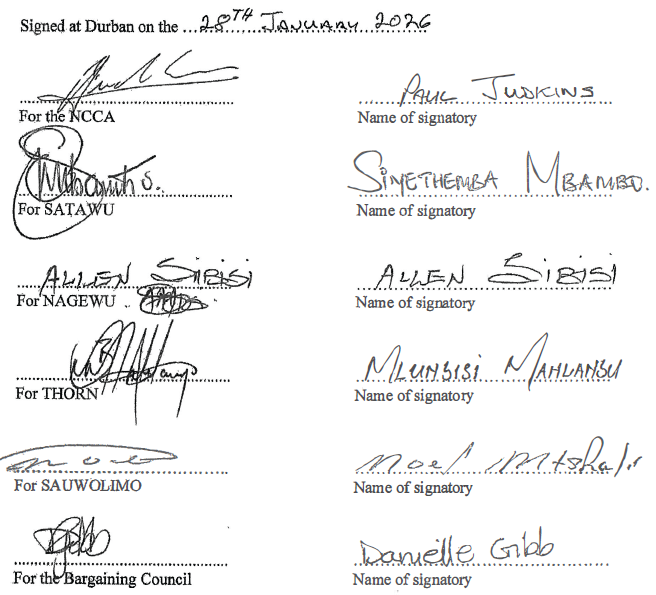 Signed at Durban on the 28TH JANUARY 2026
PAUL JUDKINS
For the NCCA Name of signatory
SIMETHEMBA MBAMBO.
For SATAWU Name of signatory
ALLEN SIBISI ALLEN SIBISI
For NAGEWU Name of signatory
MLUNGISI MAHLANGU
For THORN Name of signatory
Noel Mtshali
For SAUWOLIMO Name of signatory
Danielle Gibb
For the Bargaining Council Name of signatory